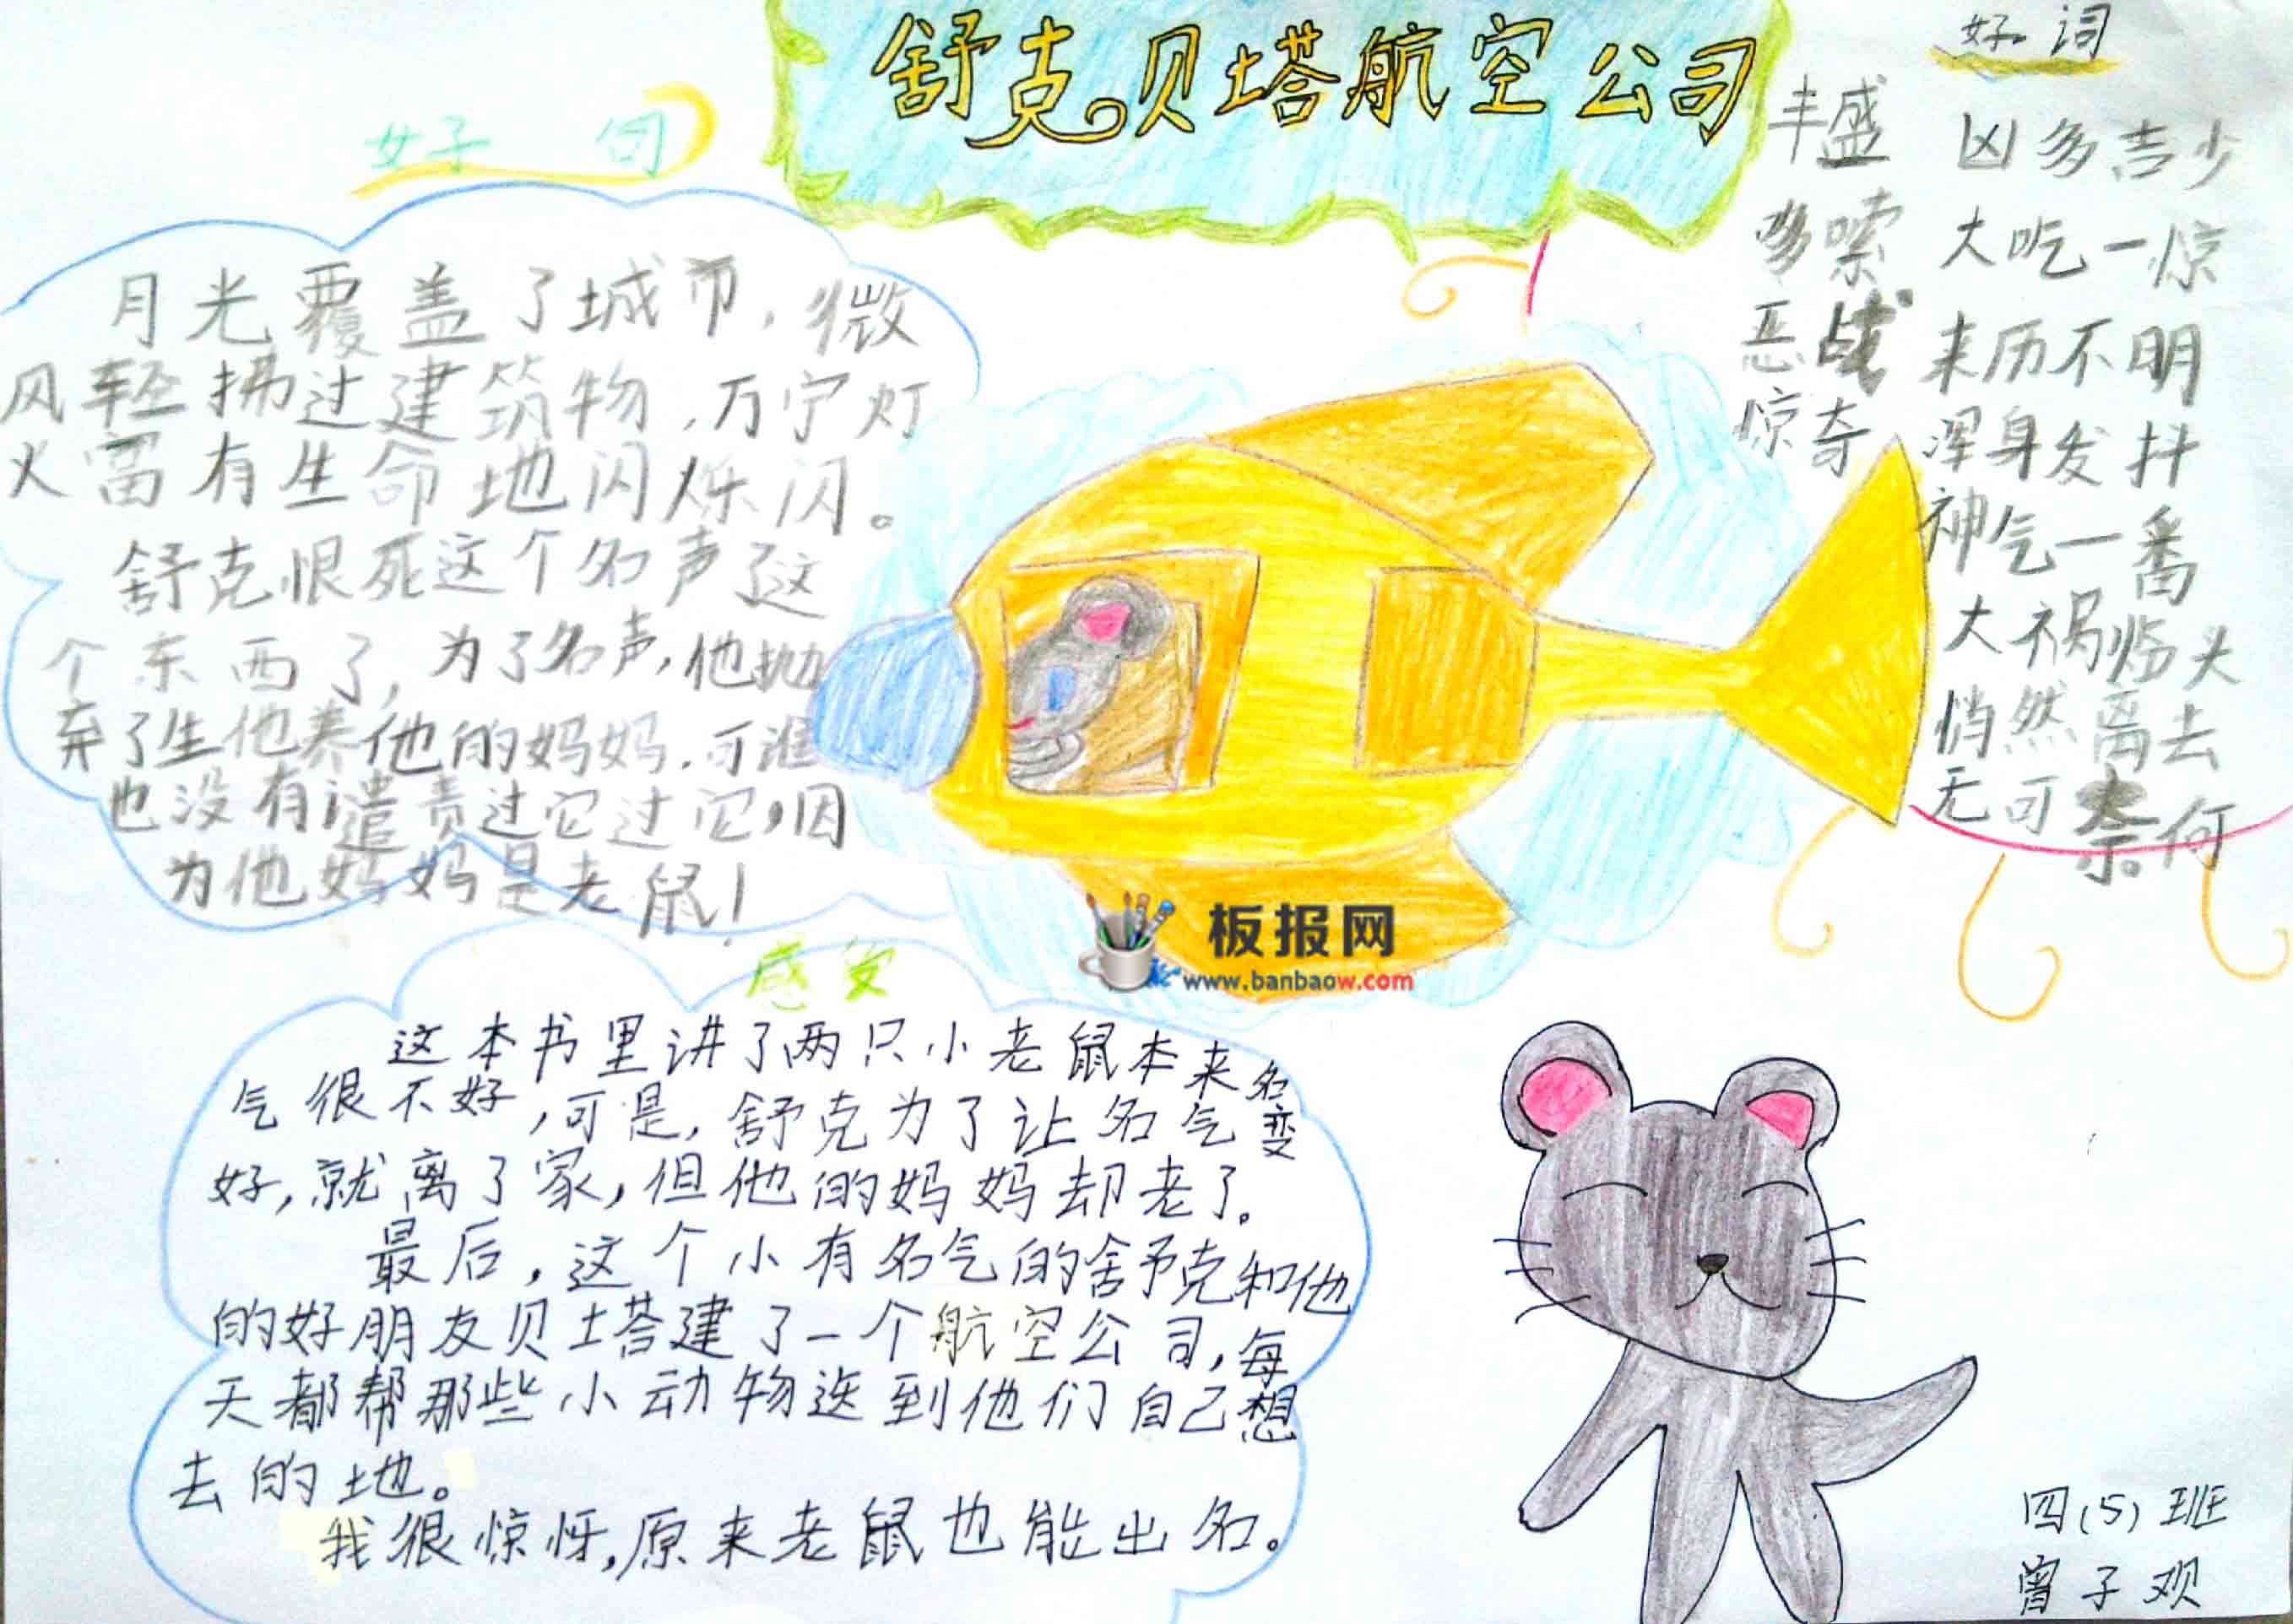 舒克。贝塔航空公司
好句
月光覆盖了城市,微
风轻拂过建筑物,万宁灯
火富有生命地闪烁闪。
舒克恨死这个名声了这
个东西了,为了名声,他抛
弃了生他养他的妈妈.可谁
也没有谴责过它过它,因
为他妈妈是老鼠!
好词
丰盛
哆嗦
恶战
惊奇
凶多吉少
大吃一惊
来历不明
浑身发抖
神气一番
大祸临头
悄然离去
无可奈何
板报网
www.banbaow.com
感受
这本书里讲了两只小老鼠本来名
气很不好,可是,舒克为了让名气变
好,就离了家,但他的妈妈却老了。
最后,这个小有名气的舒克和他
的好朋友贝塔建了一个航空公司,每
天都帮那些小动物送到他们自己想
去的地。
我很惊讶,原来老鼠也能出名。
四(5)班
曾子观